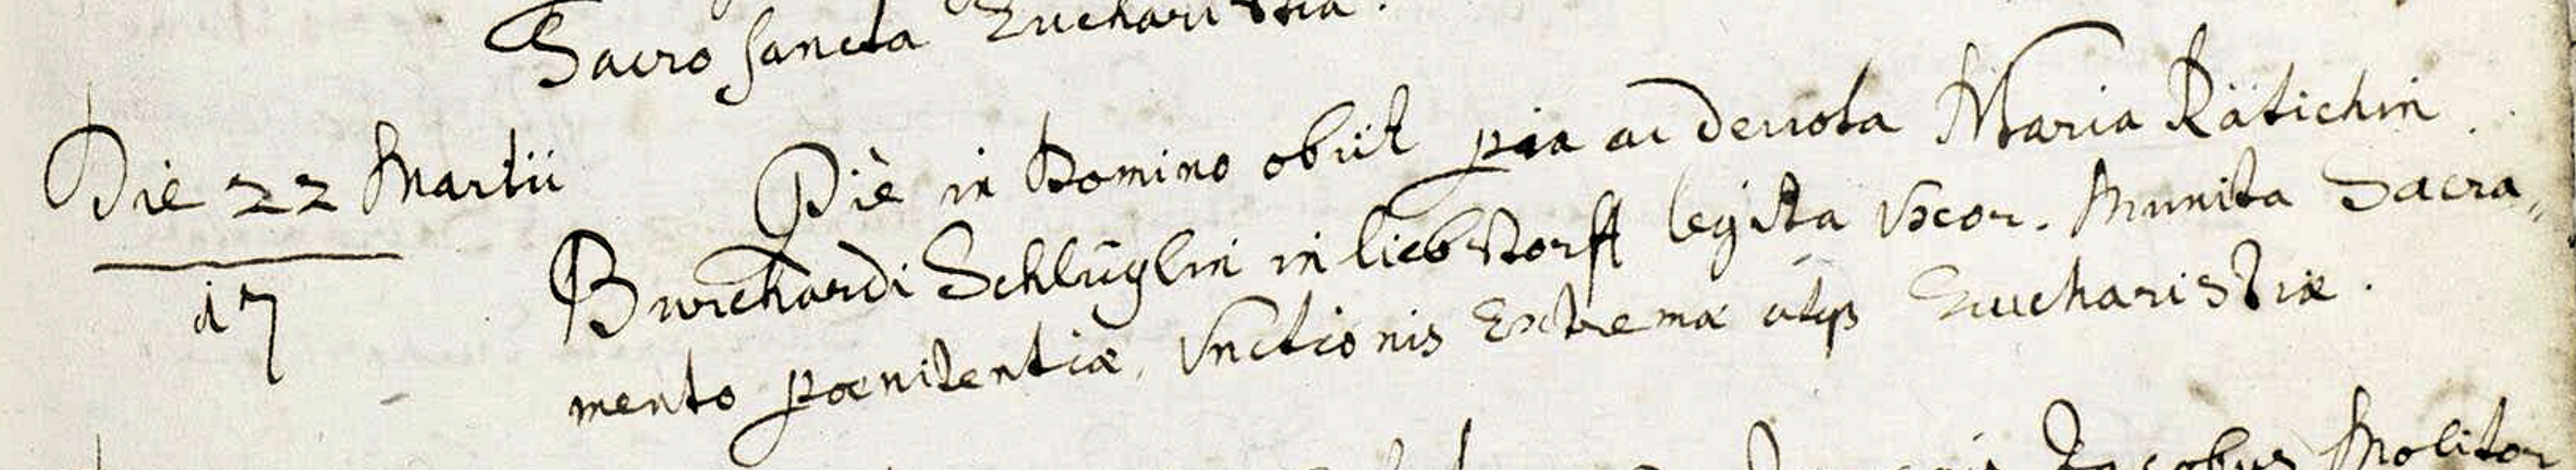 Sacro sancta Eucharistia.
Die 22 Martii
17
Piè in Domino obiit pia ac deuota Maria Rätichin.
Burchardi Schlüglin in liebstorff legista Vxor. Munita Sacra„
mento pœnitentiæ, Vnctionis Extremæ atqß Eucharistiæ.
Jacobus Molitor